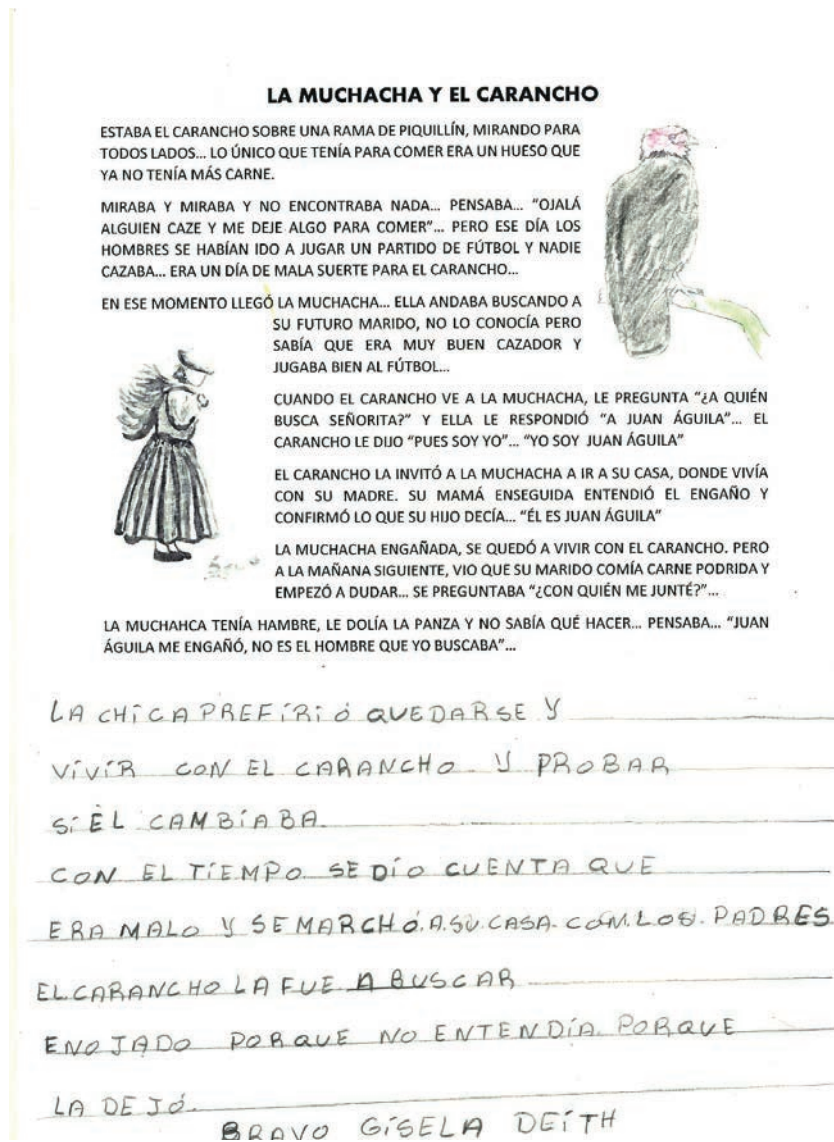 LA MUCHACHA Y EL CARANCHO
ESTABA EL CARANCHO SOBRE UNA RAMA DE PIQUILLÍN, MIRANDO PARA
TODOS LADOS... LO ÚNICO QUE TENÍA PARA COMER ERA UN HUESO QUE
YA NO TENÍA MÁS CARNE.
MIRABA Y MIRABA Y NO ENCONTRABA NADA... PENSABA... “OJALÁ
ALGUIEN CAZE Y ME DEJE ALGO PARA COMER”... PERO ESE DÍA LOS
HOMBRES SE HABÍAN IDO A JUGAR UN PARTIDO DE FÚTBOL Y NADIE
CAZABA... ERA UN DÍA DE MALA SUERTE PARA EL CARANCHO...
EN ESE MOMENTO LLEGÓ LA MUCHACHA... ELLA ANDABA BUSCANDO A
SU FUTURO MARIDO, NO LO CONOCÍA PERO
SABÍA QUE ERA MUY BUEN CAZADOR Y
JUGABA BIEN AL FÚTBOL...
CUANDO EL CARANCHO VE A LA MUCHACHA, LE PREGUNTA “¿A QUIÉN
BUSCA SEÑORITA?” Y ELLA LE RESPONDIÓ “A JUAN ÁGUILA”... EL
CARANCHO LE DIJO “PUES SOY YO”... “YO SOY JUAN ÁGUILA”
EL CARANCHO LA INVITÓ A LA MUCHACHA A IR A SU CASA, DONDE VIVÍA
CON SU MADRE. SU MAMÁ ENSEGUIDA ENTENDIÓ EL ENGAÑO Y
CONFIRMÓ LO QUE SU HIJO DECÍA... “ÉL ES JUAN ÁGUILA”
LA MUCHACHA ENGAÑADA, SE QUEDÓ A VIVIR CON EL CARANCHO. PERO
A LA MAÑANA SIGUIENTE, VIO QUE SU MARIDO COMÍA CARNE PODRIDA Y
EMPEZÓ A DUDAR... SE PREGUNTABA “¿CON QUIÉN ME JUNTÉ?”...
LA MUCHAHCA TENÍA HAMBRE, LE DOLÍA LA PANZA Y NO SABÍA QUÉ HACER... PENSABA... “JUAN
ÁGUILA ME ENGAÑÓ, NO ES EL HOMBRE QUE YO BUSCABA”...
LA CHÍCA PREFÍRÍÓ QUEDARSE Y
VÍVÍR CON EL CARANCHO Y PROBAR
SÍ ÉL CAMBÍABA.
CON EL TÍEMPO SE DÍO CUENTA QUE
ERA MALO Y SE MARCHÓ.A.SU.CASA.COM.LOS.PADRES
EL.CARANCHO LA FUE A BUSCAR
ENOJADO PORQUE NO ENTENDÍA PORQUE
LA DEJÓ.
BRAVO GÍSELA DEÍTH